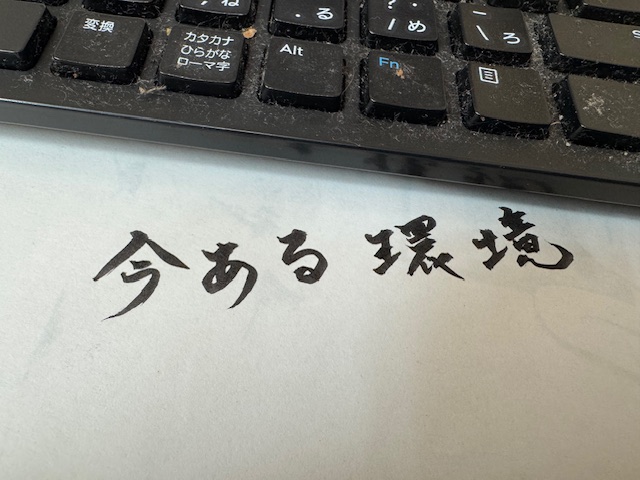 ね る め ろ
変換 カタカナ ひらがな ローマ字 Alt Fn
今ある環境